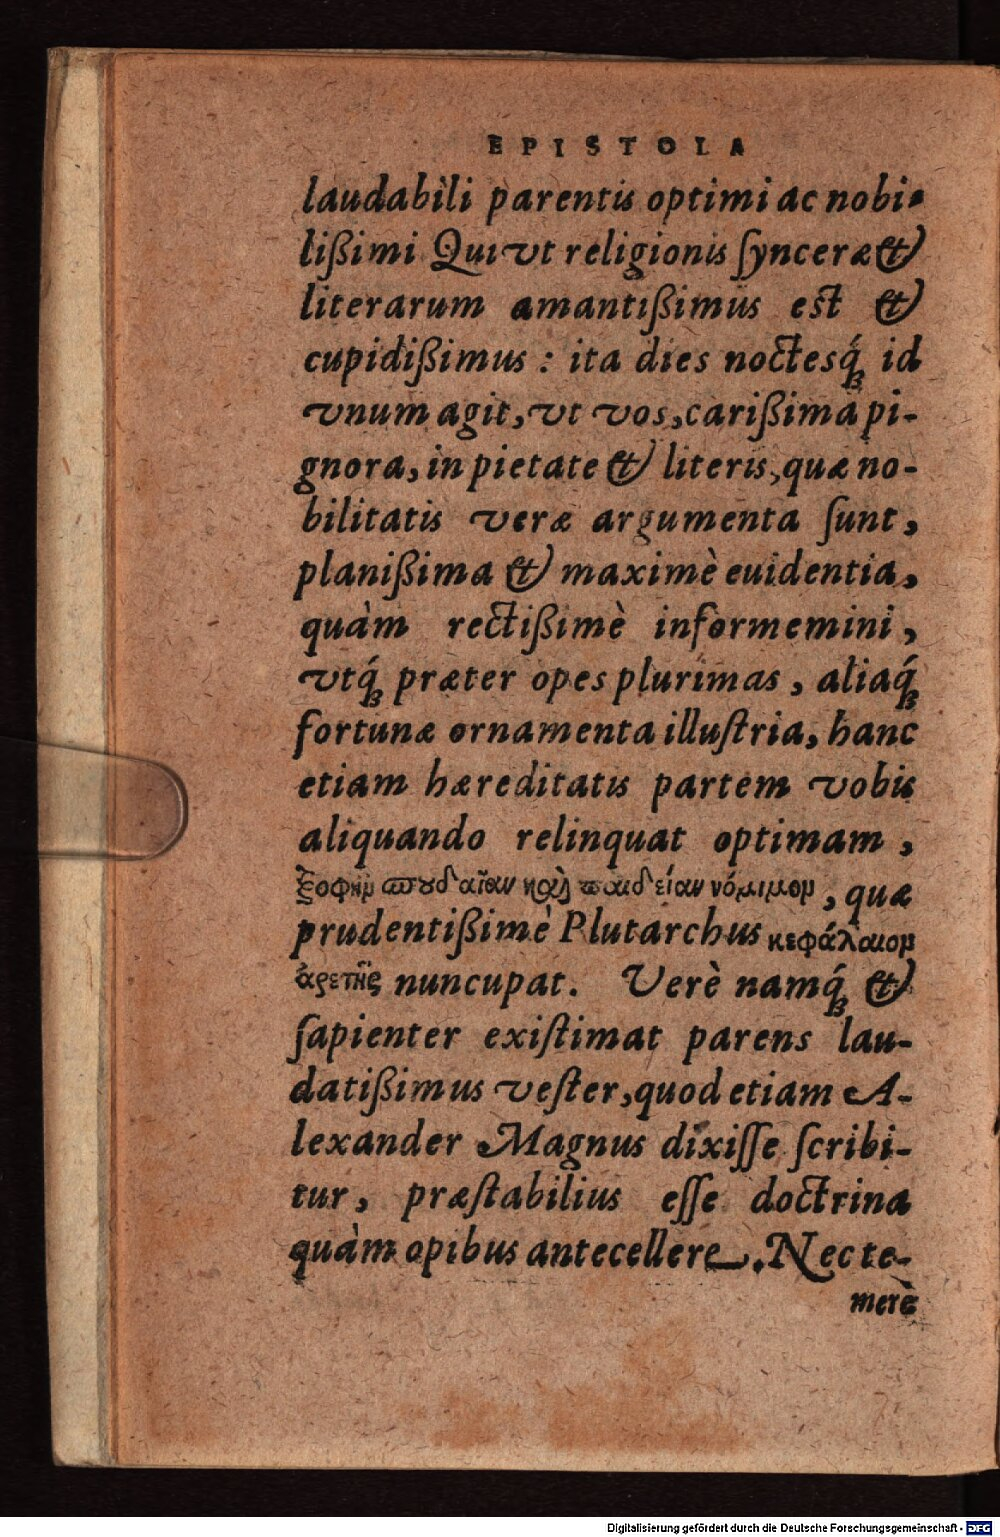 EPISTOLA
laudabili parentis optimi ac nobi-
lißimi Qui vt religionis ſynceræ &
literarum amantißimus est &
cupidißimus : ita dies noctesq́; id
vnum agit, vt vos, carißima pi-
gnora, in pietate & literis, quæ no-
bilitatis veræ argumenta ſunt,
planißima & maximè euidentia,
quàm rectißimè informemini,
vtq́; præter opes plurimas, aliaq́;
fortunæ ornamenta illuſtria, hanc
etiam hæreditatis partem vobis
aliquando relinquat optimam,
παιδείαν νόμιμον, quæ
prudentißimè Plutarchus κεφάλαιον
ἀρετῆς nuncupat. Verè namq́; &
ſapienter exiſtimat parens lau-
datißimus veſter, quod etiam A-
lexander Magnus dixiſſe ſcribi-
tur, præſtabilius eſſe doctrina
quàm opibus antecellere. Nec te-
merè
Digitalisierung gefördert durch die Deutsche Forschungsgemeinschaft - DFG